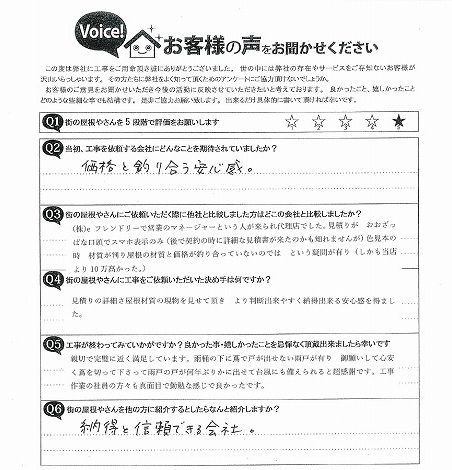 Voice!
お客様の声をお聞かせください
この度は弊社に工事をご用命頂き誠にありがとうございました。世の中には弊社の存在やサービスをご存知ないお客様が
沢山いらっしゃいます。その方たちに弊社をよく知って頂くためのアンケートにご協力頂けないでしょうか。
お客様のご意見をお聞かせいただき今後の活動に反映させていただきたいと考えております。良かったこと、嬉しかったこと
どのような些細な事でも結構です。是非ご協力お願い致します。出来るだけ具体的に書いて頂ければ幸いです。
Q1 街の屋根やさんを5段階で評価をお願いします ☆ ☆ ☆ ☆ ★
Q2 当初、工事を依頼する会社にどんなことを期待されていましたか?
価格と釣り合う安心感。
Q3 街の屋根やさんにご依頼いただく際に他社と比較しました方はどこの会社と比較しましたか?
(株)e フレンドリーで営業のマネージャーという人が来られ代理店でした。見積りが おおざっ
ぱな口頭でスマホ表示のみ(後で契約の時に詳細な見積書が来たのかも知れませんが)色見本の
時 材質が判り屋根の材質と価格が釣り合っていないのでは という疑問が有り(しかも当店
より10万高かった。)
Q4 街の屋根やさんに工事をご依頼いただいた決め手は何ですか?
見積りの詳細さ屋根材質の現物を見せて頂き より判断出来やすく納得出来る安心感を得まし
た。
Q5 工事が終わってみていかがですか?良かった事・嬉しかったことを忌憚なく頂戴出来ましたら幸いです
親切で完璧に近く満足しています。雨樋の下に蔦で戸が出せない雨戸が有り 御願いして心安
く蔦を切って下さって雨戸の戸が何年ぶりかに出せて台風にも備えられると超感謝です。工事
作業の社員の方々も真面目で勤勉な感じで良かったです。
Q6 街の屋根やさんを他の方に紹介するとしたらなんと紹介しますか?
納得と信頼できる会社。